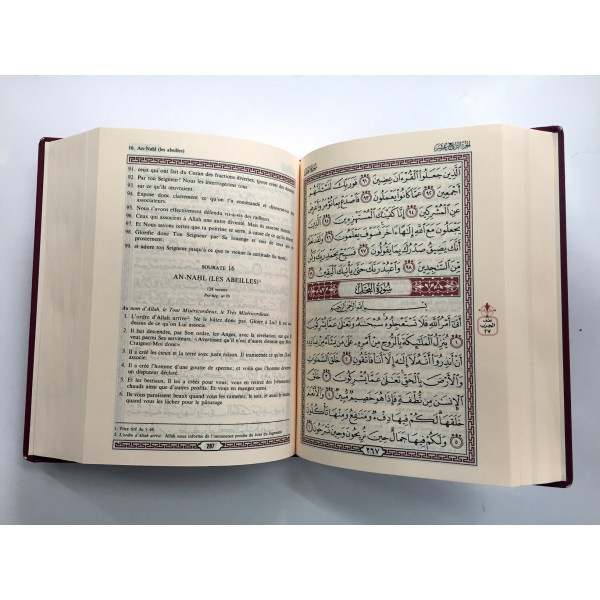 16. An-Nahl (les abeilles)
91. ceux qui ont fait du Coran des fractions diverses, (pour créer des doutes).
92. Par ton Seigneur! Nous les interrogerons tous
93. sur ce qu'ils œuvraient.
94. Expose donc clairement ce qu'on t'a commandé et détourne-toi des
associateurs.
95. Nous t'avons effectivement défendu vis-à-vis des railleurs.
96. Ceux qui associent à Allah une autre divinité. Mais ils sauront bientôt.
97. Et Nous savons certes que ta poitrine se serre, à cause de ce qu'ils disent.
98. Glorifie donc Ton Seigneur par Sa louange et sois de ceux qui se
prosternent;
99. et adore ton Seigneur jusqu'à ce que te vienne la certitude (la mort).
SOURATE 16
AN-NAHL (LES ABEILLES)¹
(128 versets)
Pré-Hég. n° 70
Au nom d'Allah, le Tout Miséricordieux, le Très Miséricordieux.
1. L'ordre d'Allah arrive². Ne le hâtez donc pas. Gloire à Lui! Il est au-
dessus de ce qu'on Lui associe.
2. Il fait descendre, par Son ordre, les Anges, avec la révélation,
3. Il a créé les cieux et la terre avec juste raison. Il transcende ce qu'on [Lui]
associe.
4. Il a créé l'homme d'une goutte de sperme; et voilà que l'homme devient
un disputeur déclaré.
5. Et les bestiaux, Il les a créés pour vous; vous en retirez des [vêtements]
chauds ainsi que d'autres profits. Et vous en mangez aussi
6. Ils vous paraissent beaux quand vous les ramenez, le soir, et aussi le matin
quand vous les lâchez pour le pâturage
1. Titre tiré du v. 68.
2. L'ordre d'Allah arrive: Allah nous informe de l'imminence proche du Jour du Jugement
267
الجزء الرابع عشر
الَّذِينَ جَعَلُوا الْقُرْءَانَ عِضِينَ ٩١ فَوَرَبِّكَ لَنَسْـَٔلَنَّهُمْ
أَجْمَعِينَ ٩٢ عَمَّا كَانُوا يَعْمَلُونَ ٩٣ فَاصْدَعْ بِمَا تُؤْمَرُ وَأَعْرِضْ
عَنِ الْمُشْرِكِينَ ٩٤ إِنَّا كَفَيْنَاكَ الْمُسْتَهْزِءِينَ ٩٥ الَّذِينَ
يَجْعَلُونَ مَعَ اللَّهِ إِلَٰهًا ءَاخَرَ فَسَوْفَ يَعْلَمُونَ ٩٦ وَلَقَدْ نَعْلَمُ
أَنَّكَ يَضِيقُ صَدْرُكَ بِمَا يَقُولُونَ ٩٧ فَسَبِّحْ بِحَمْدِ رَبِّكَ وَكُن
مِّنَ السَّاجِدِينَ ٩٨ وَاعْبُدْ رَبَّكَ حَتَّىٰ يَأْتِيَكَ الْيَقِينُ ٩٩
سُورَةُ النَّحْلِ
بِسْمِ اللَّهِ الرَّحْمَٰنِ الرَّحِيمِ
أَتَىٰ أَمْرُ اللَّهِ فَلَا تَسْتَعْجِلُوهُ سُبْحَانَهُ وَتَعَالَىٰ عَمَّا يُشْرِكُونَ
١ يُنَزِّلُ الْمَلَائِكَةَ بِالرُّوحِ مِنْ أَمْرِهِ عَلَىٰ مَن يَشَاءُ مِنْ عِبَادِهِ
أَنْ أَنذِرُوا أَنَّهُ لَا إِلَٰهَ إِلَّا أَنَا فَاتَّقُونِ ٢ خَلَقَ السَّمَاوَاتِ
وَالْأَرْضَ بِالْحَقِّ تَعَالَىٰ عَمَّا يُشْرِكُونَ ٣ خَلَقَ
الْإِنسَانَ مِن نُّطْفَةٍ فَإِذَا هُوَ خَصِيمٌ مُّبِينٌ ٤ وَالْأَنْعَامَ
خَلَقَهَا لَكُمْ فِيهَا دِفْءٌ وَمَنَافِعُ وَمِنْهَا تَأْكُلُونَ
٥ وَلَكُمْ فِيهَا جَمَالٌ حِينَ تُرِيحُونَ وَحِينَ تَسْرَحُونَ ٦
نصف
الحزب
٢٧
٢٦٧